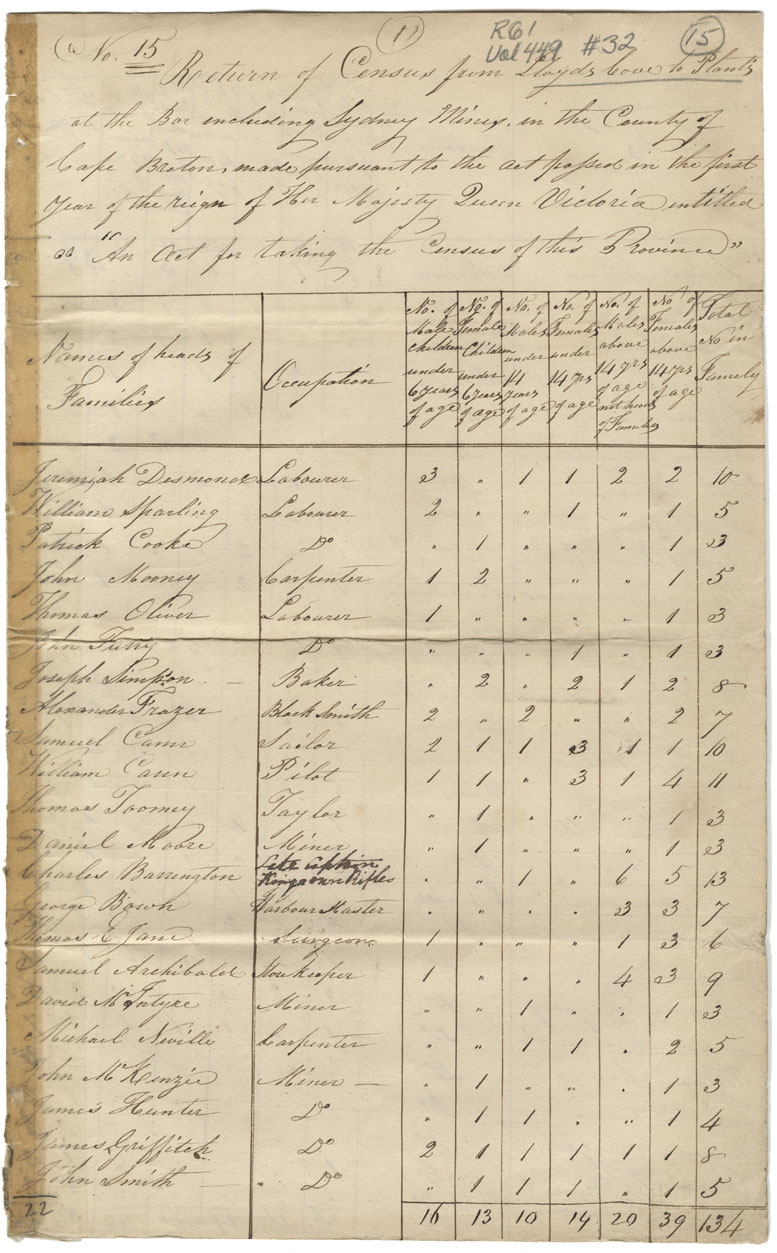 No. 15 (1) RG1 Vol 449 #32 15
Return of Census from Lloyds Cove to Plants
at the Bar including Sydney Mines, in the County of
Cape Breton, made pursuant to the act passed in the first
year of the reign of Her Majesty Queen Victoria entitled
"An Act for taking the Census of this Province"
Names of heads of Families | Occupation | No. of Male Children under 6 years of age | No. of Female Children under 6 years of age | No. of Males under 14 years of age | No. of Females under 14 yrs of age | No. of Males above 14 yrs of age not heads of Families | No of Females above 14 yrs of age | Total No in Family
Jeremiah Desmond Labourer 3 " 1 1 2 2 10
William Sparling Labourer 2 " " 1 " 1 5
Patrick Cooke Do " 1 " " " 1 3
John Mooney Carpenter 1 2 " " " 1 5
Thomas Oliver Labourer 1 " " " " 1 3
John Do " " " 1 " 1 3
Joseph Simpson Baker " 2 " 2 1 2 8
Alexander Frazer Black Smith 2 " 2 " " 2 7
Samuel Cann Sailor 2 1 1 3 1 1 10
William Cann Pilot 1 1 " 3 1 4 11
Thomas Toomey Taylor " 1 " " " 1 3
Daniel Moore Miner " 1 " " " 1 3
Charles Barrington Late Captain Kings own Rifles " " 1 " 6 5 13
George Bown Harbour Master " " " " 3 3 7
Thomas E Jane Surgeon 1 " " " 1 3 6
Samuel Archibald Storekeeper 1 " " " 4 3 9
David McIntyre Miner " " 1 " " 1 3
Michael Neville Carpenter " " 1 1 " 2 5
John McKenzie Miner " 1 " " " 1 3
James Hunter Do " 1 1 " " 1 4
James Griffitch Do 2 1 1 1 1 1 8
John Smith Do " 1 1 1 " 1 5
22 16 13 10 14 20 39 134